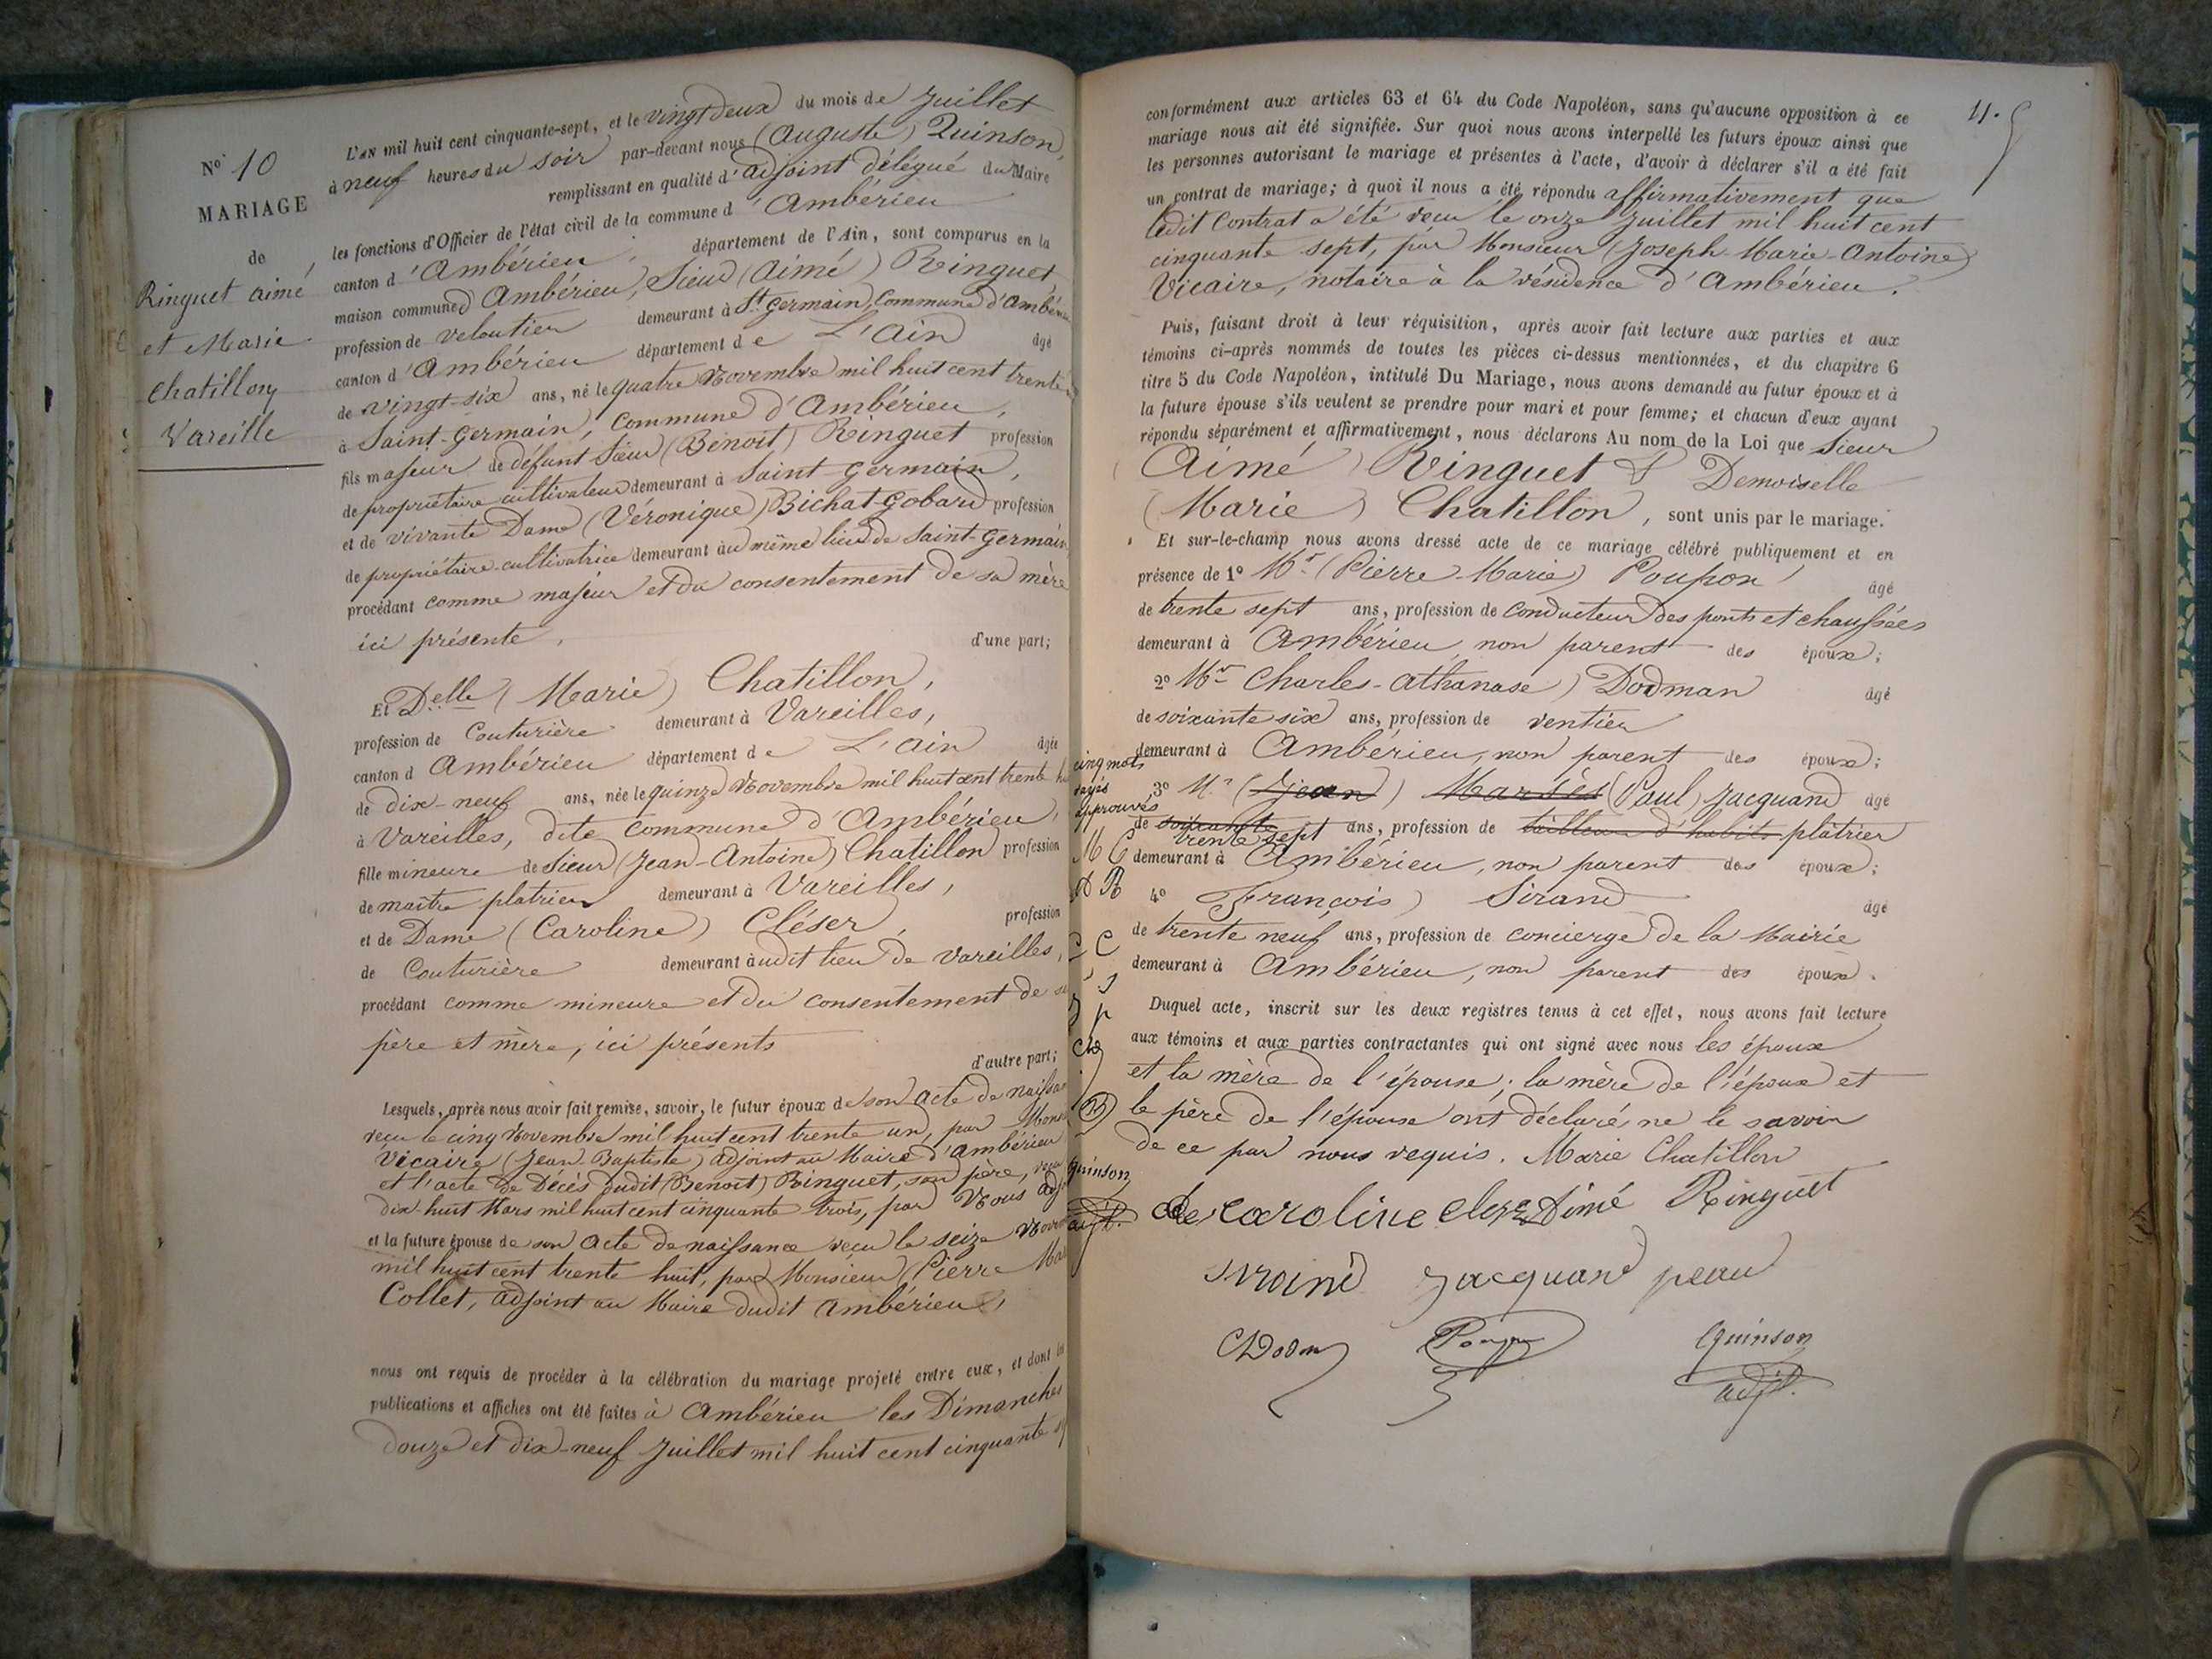 No 10
MARIAGE
de
Ringuet aimé
et Marie
Chatillon
Vareille
L'AN mil huit cent cinquante-sept, et le vingt deux du mois de Juillet
à neuf heures du soir par-devant nous (Auguste) Quinson,
remplissant en qualité d'adjoint délégué du Maire
les fonctions d'Officier de l'état civil de la commune d'Ambérieu
canton d'Ambérieu, département de l'Ain, sont comparus en la
maison commune d'Ambérieu, Sieur (Aimé) Ringuet,
profession de veloutier demeurant à St Germain, Commune d'Ambérieu
canton d'Ambérieu département de L'ain âgé
de vingt-six ans, né le quatre Novembre mil huit cent trente
à Saint-Germain, commune d'Ambérieu,
fils majeur de défunt Sieur (Benoit) Ringuet profession
de propriétaire cultivateur demeurant à Saint Germain,
et de vivante Dame (Véronique) Bichat-Gobard profession
de propriétaire-cultivatrice demeurant au même lieu de Saint-Germain
procédant comme majeur et du consentement de sa mère
ici présente, d'une part;
Et Delle (Marie) Chatillon,
profession de Couturière demeurant à Vareilles,
canton d Ambérieu département de L'ain âgée
de dix-neuf ans, née le quinze Novembre mil huit cent trente
à Vareilles, dite commune d'Ambérieu,
fille mineure de Sieur (Jean-Antoine) Chatillon profession
de maître platrier demeurant à Vareilles,
et de Dame (Caroline) Cléser, profession
de Couturière demeurant audit lieu de Vareilles,
procédant comme mineure et du consentement de
père et mère, ici présents
d'autre part;
Lesquels, après nous avoir fait remise, savoir, le futur époux de son acte de
reçu le cinq Novembre mil huit cent trente un, par
Vicaire (Jean-Baptiste) adjoint au Maire d'Ambérieu
et l'acte de Décès dudit (Benoit) Ringuet, son père, reçu
dix-huit Mars mil huit cent cinquante trois, par Nous
et la future épouse de son acte de naissance reçu le seize
mil huit cent trente huit, par Monsieur (Pierre
Collet, adjoint au Maire dudit Ambérieu,
nous ont requis de procéder à la célébration du mariage projeté entre eux, et dont les
publications et affiches ont été faites à Ambérieu les Dimanches
douze et dix-neuf Juillet mil huit cent cinquante
11.
conformément aux articles 63 et 64 du Code Napoléon, sans qu'aucune opposition à ce
mariage nous ait été signifiée. Sur quoi nous avons interpellé les futurs époux ainsi que
les personnes autorisant le mariage et présentes à l'acte, d'avoir à déclarer s'il a été fait
un contrat de mariage; à quoi il nous a été répondu affirmativement que
ledit Contrat a été reçu le onze Juillet mil huit cent
cinquante sept, par Monsieur (Joseph-Marie-Antoine)
Vicaire, notaire à la résidence d'Ambérieu.
Puis, faisant droit à leur réquisition, après avoir fait lecture aux parties et aux
témoins ci-après nommés de toutes les pièces ci-dessus mentionnées, et du chapitre 6
titre 5 du Code Napoléon, intitulé Du Mariage, nous avons demandé au futur époux et à
la future épouse s'ils veulent se prendre pour mari et pour femme; et chacun d'eux ayant
répondu séparément et affirmativement, nous déclarons Au nom de la Loi que Sieur
(Aimé) Ringuet & Demoiselle
(Marie) Chatillon, sont unis par le mariage.
Et sur-le-champ nous avons dressé acte de ce mariage célébré publiquement et en
présence de 1o Mr (Pierre-Marie) Poupon âgé
de trente sept ans, profession de conducteur des ponts et chaussées
demeurant à Ambérieu, non parent des époux;
2o Mr Charles-Athanase) Dodman âgé
de soixante six ans, profession de rentier
demeurant à Ambérieu, non parent des époux;
cinq mots
rayés
approuvés
3o Mr (Jean) Marsès (Paul) Jacquand âgé
de soixante trente sept ans, profession de tailleur d'habits platrier
M C demeurant à Ambérieu, non parent des époux;
A R
4o François) Sirand âgé
de trente neuf ans, profession de concierge de la Mairie
C C
demeurant à Ambérieu, non parent des époux.
Duquel acte, inscrit sur les deux registres tenus à cet effet, nous avons fait lecture
aux témoins et aux parties contractantes qui ont signé avec nous les époux
et la mère de l'épouse; la mère de l'époux et
le père de l'épouse ont déclaré ne le savoir
de ce par nous requis. Marie Chatillon
Quinson
adjt.
Caroline Aimé Ringuet
Sirand Jacquand peau
Quinson
adjt.